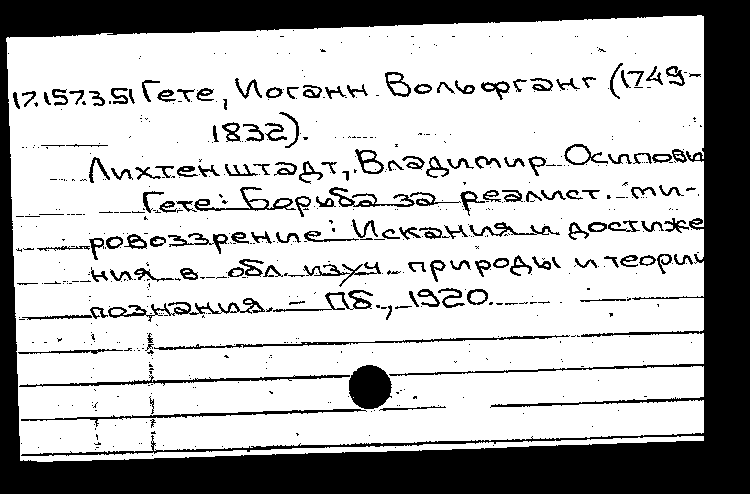 17.157.3.51 Гете, Иоганн Вольфганг (1749-
1832).
Лихтенштадт, Владимир Осипови
Гете: Борьба за реалист. ми-
ровоззрение: Искания и достиже
ния в обл. изуч. природы и теории
познания. - Пб., 1920.